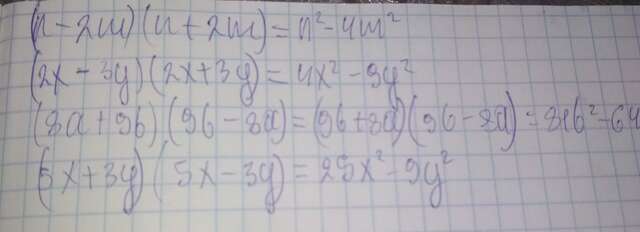 (n-2m)(n+2m)=n²-4m²
(2x-3y)(2x+3y)=4x²-9y²
(8a+9b)(9b-8a)=(9b+8a)(9b-8a)=81b²-64
(5x+3y)(5x-3y)=25x²-9y²